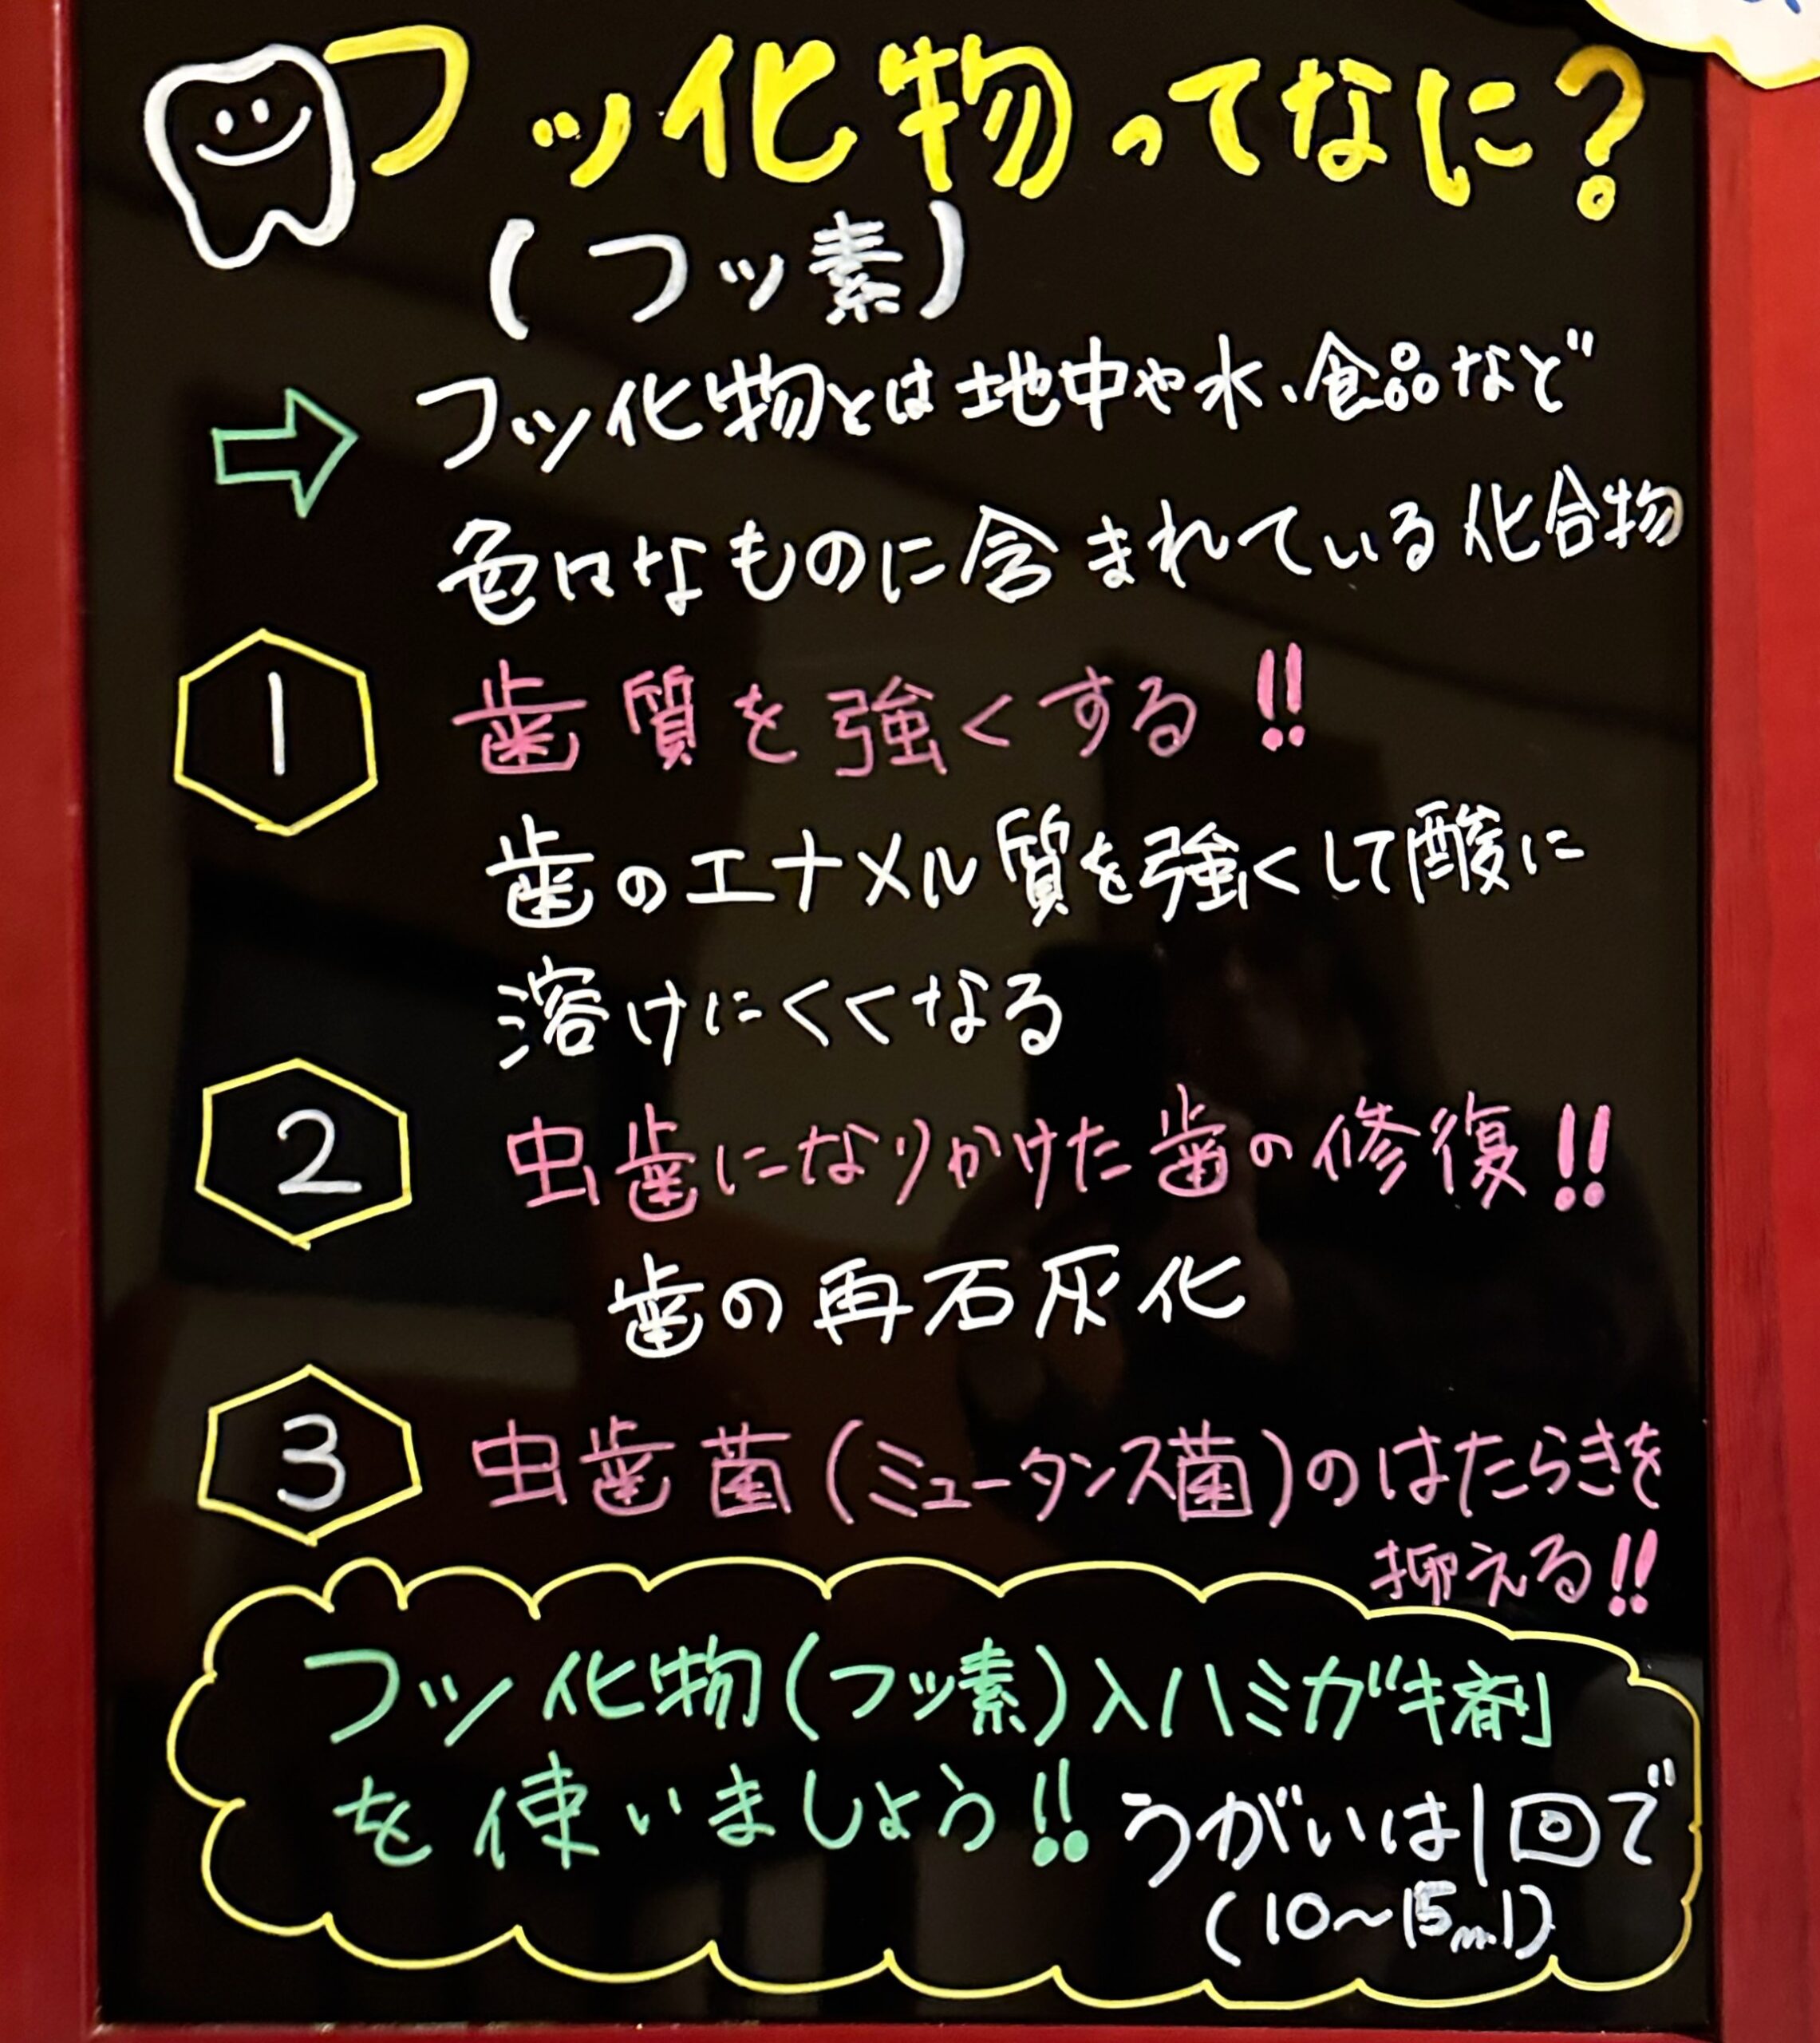 フッ化物ってなに?
(フッ素)
フッ化物とは地中や水、食品など
色々なものに含まれている化合物
1 歯質を強くする!!
歯のエナメル質を強くして酸に
溶けにくくなる
2 虫歯になりかけた歯の修復!!
歯の再石灰化
3 虫歯菌(ミュータンス菌)のはたらきを
抑える!!
フッ化物(フッ素)入ハミガキ剤
を使いましょう!! うがいは1回で
(10~15ml)